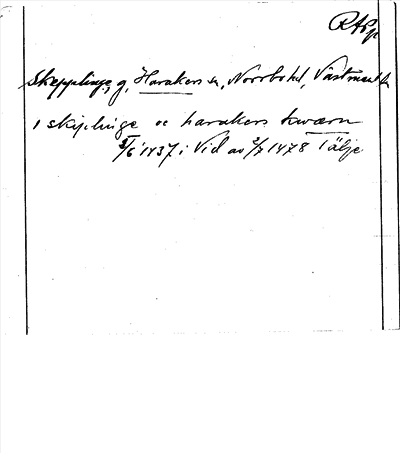 RAp
Skepplinge, g, Harakers sn, Norrbo hd, Västmanl
i skiplinge oc harakers kwærn
3/6 1437 i Vid av 2/7 1478 Tälje